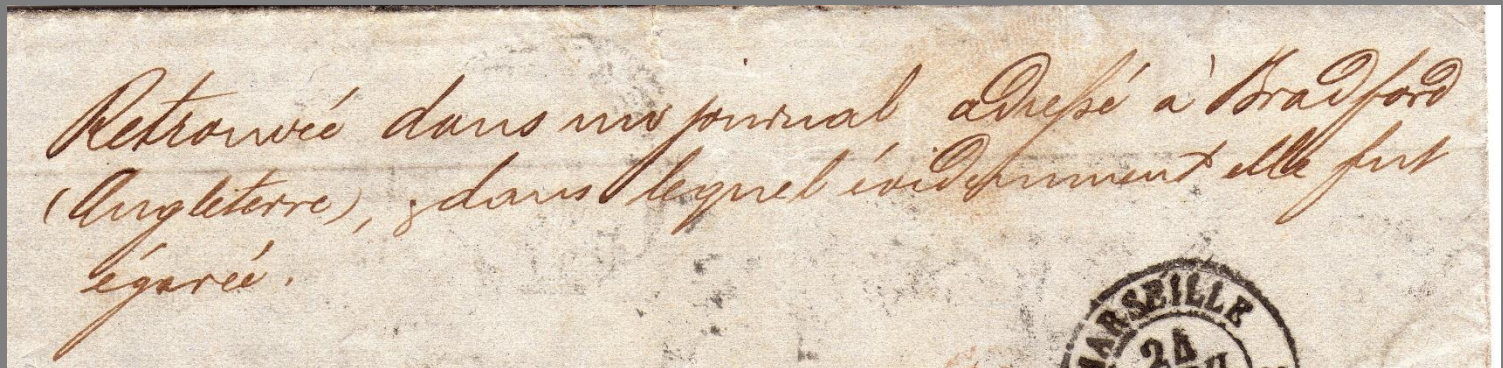 Retrouvée dans un journal adressé à Bradford
(Angleterre), & dans lequel évidemment elle fut
égarée.
MARSEILLE
24